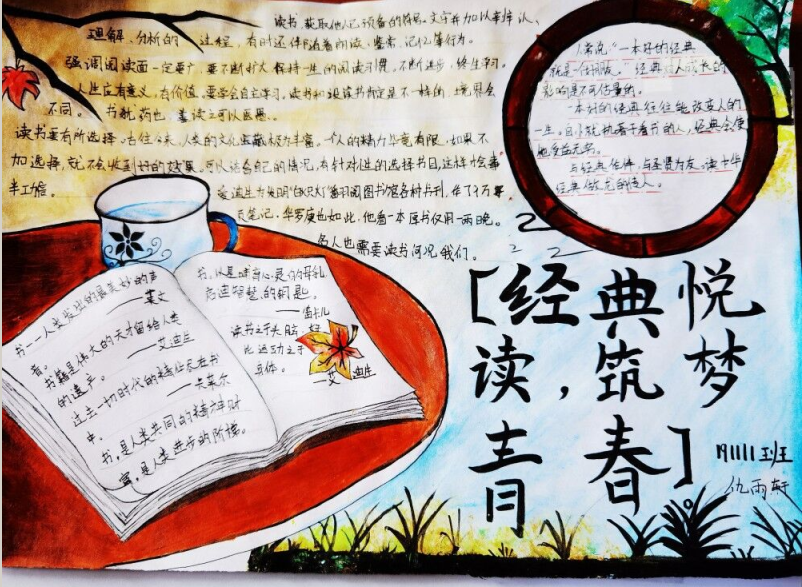 读书,获取他人已预备的符号、文字并加以辨认、
理解、分析的 过程,有时还伴随着朗读、鉴赏、记忆等行为。
强调阅读面一定要广,要不断扩大保持一生的阅读习惯,不断进步,终生学习。
人生应有意义,有价值,要学会自主学习。读书和不读书书定是不一样的,境界会
不同。 书就药也,善读之可以医愚。
读书要有所选择。古往今来,人类的文化宝藏极为丰富。一个人的精力毕竟有限,如果不
加选择,就不会收到好的效果。可以结合自己的情况,有针对性的选择书目,这样才会事
半功倍。
爱迪生为发明"白炽灯"翻阅图书馆各种卡刊,作了4万零
页笔记,华罗庚也如此,他看一本厚书仅用一两晚。
名人也需要读书何况我们。
人常说"一本好的经典
就是一任师。" 经典对人成长的
影响是不可估量的。
一本好的经典往往能改变人的
一生。自小就执着于看书的人,经典会使
他受益无穷。
与经典作伴,与圣贤为友,读中华
经典做龙的传人。
书——人类发出的最美妙的声
音。 ——莱文
书籍是伟大的天才留给人类
的遗产。 ——艾迪生
过去一切时代的精华尽在书
中。 ——卡莱尔
书,是人类共同的精神财
富,是人类进步的阶梯。
书,以是哺育心灵的母乳
启迪智慧的钥匙。
——笛卡儿
读书之于头脑,好
比运动之于
身体。
——艾迪生
[经典悦
读,筑梦
青春]。
11111班
仇雨轩